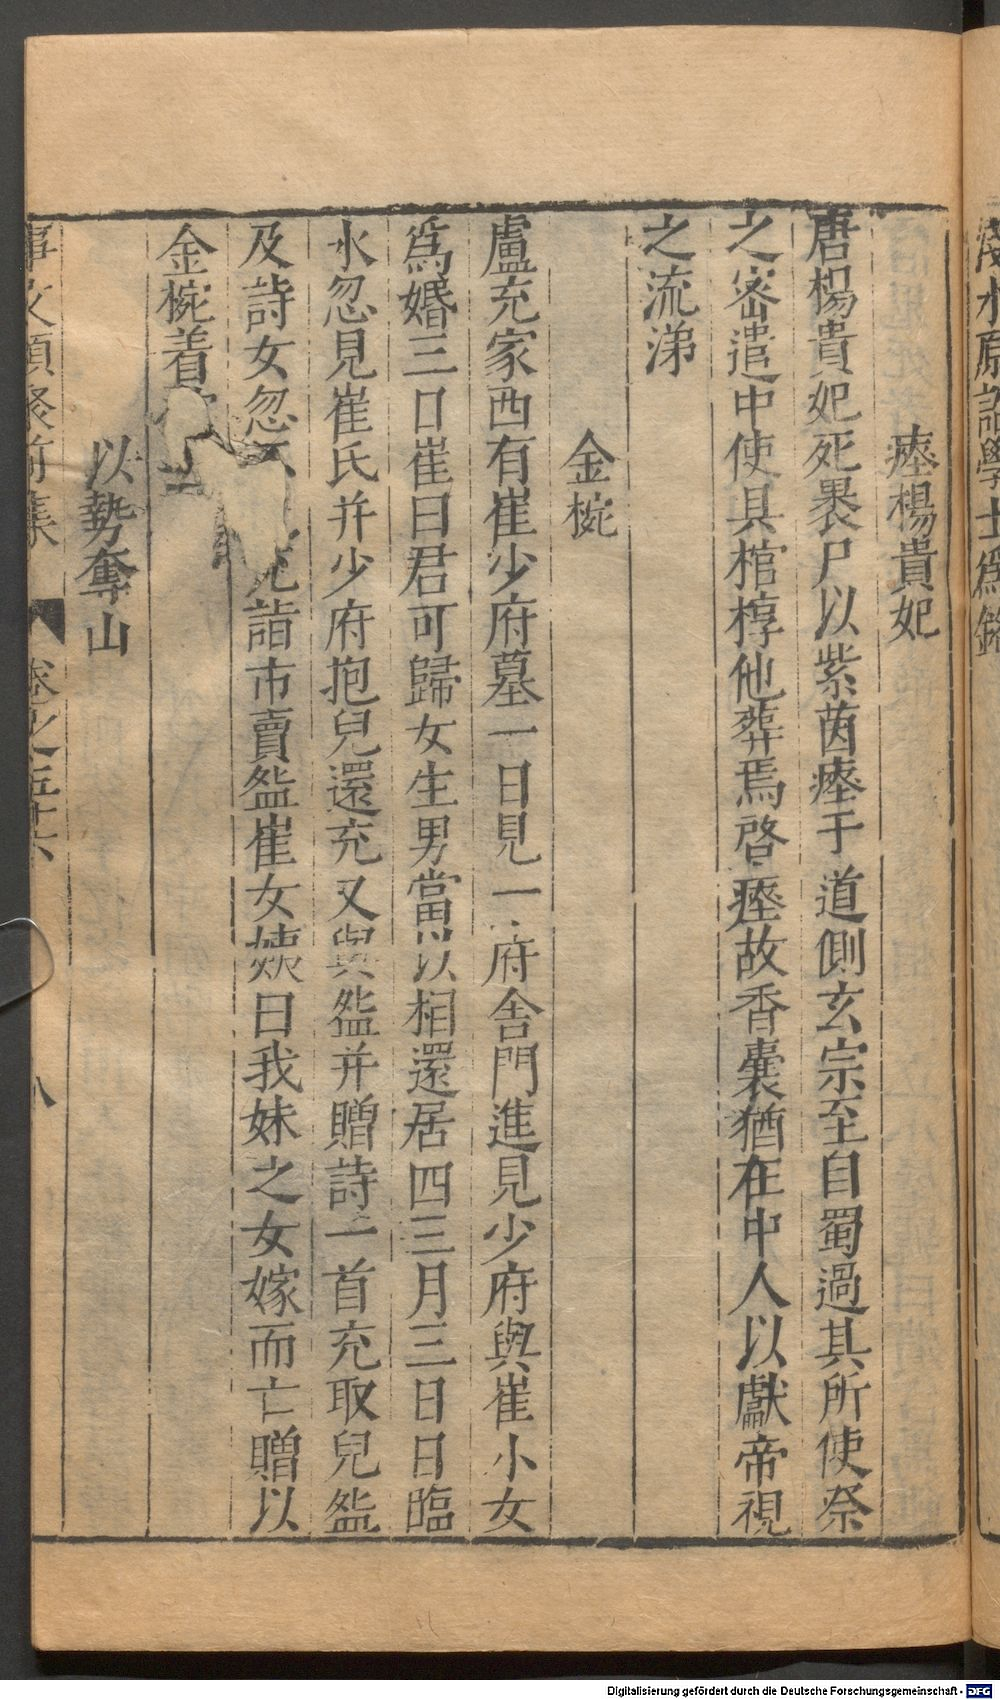 淺水原詔學士爲銘
瘞楊貴妃
唐楊貴妃死裹尸以紫茵瘞于道側玄宗至自蜀過其所使祭
之密遣中使具棺椁他葬焉啓瘞故香囊猶在中人以獻帝視
之流涕
金椀
盧充家西有崔少府墓一日見一府舍門進見少府與崔小女
爲婚三日崔曰君可歸女生男當以相還居四三月三日日臨
水忽見崔氏并少府抱兒還充又與盌并贈詩一首充取兒盌
及詩女忽 充詣市賣盌崔女姨曰我妹之女嫁而亡贈以
金椀着
以勢奪山
事文類聚前集 卷之五十六 八
Digitalisierung gefördert durch die Deutsche Forschungsgemeinschaft - DFG